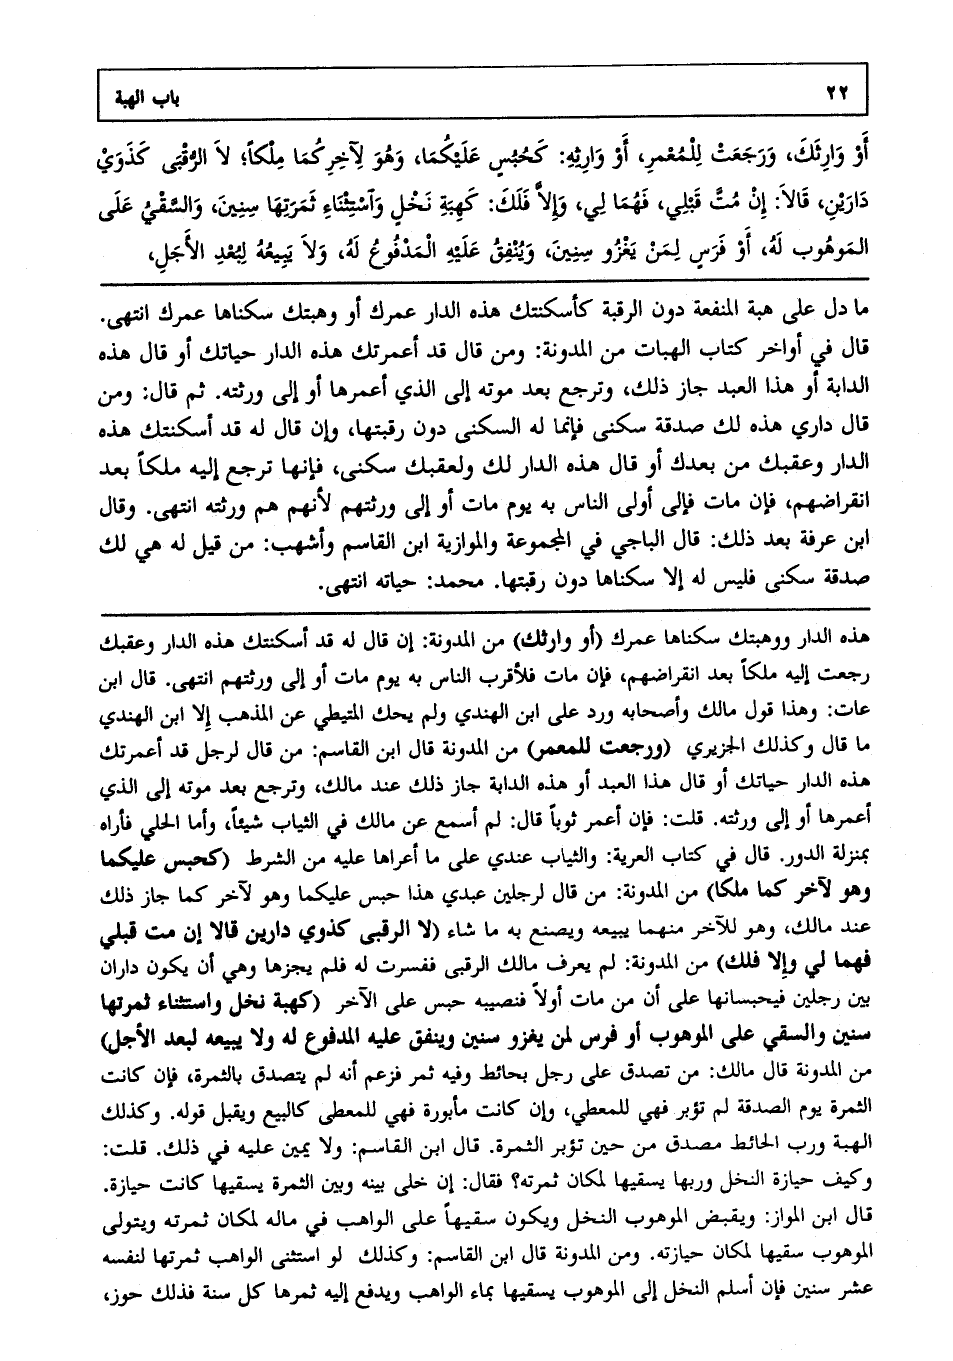 ٢٢ باب الهبة
أَوْ وَارِثَكَ، وَرَجَعَتْ لِلْمُعْمِرِ، أَوْ وَارِثِهِ: كَحُبُسٍ عَلَيْكُمَا، وَهُوَ لِآخِرِكُمَا مِلْكاً؛ لاَ الرُّقْبَى كَذَوَيْ
دَارَيْنِ، قَالاَ: إِنْ مُتَّ قَبْلِي، فَهُمَا لِي، وَإِلاَّ فَلَكَ: كَهِبَةِ نَخْلٍ وَاَسْتِثْنَاءِ ثَمَرَتِهَا سِنِينَ، وَالسَّقْيُ عَلَى
المَوهُوب لَهُ، أَوْ فَرَسٍ لِمَنْ يَغْزُو سِنِينَ، وَيُنْفِقُ عَلَيْهِ الْمَدْفُوعُ لَهُ، وَلاَ يَبِيعُهُ لِبُعْدِ الأَجَلِ،
ما دل على هبة المنفعة دون الرقبة كأسكنتك هذه الدار عمرك أو وهبتك سكناها عمرك انتهى.
قال في أواخر كتاب الهبات من المدونة: ومن قال قد أعمرتك هذه الدار حياتك أو قال هذه
الدابة أو هذا العبد جاز ذلك، وترجع بعد موته إلى الذي أعمرها أو إلى ورثته. ثم قال: ومن
قال داري هذه لك صدقة سكنى فإنما له السكنى دون رقبتها، وإن قال له قد أسكنتك هذه
الدار وعقبك من بعدك أو قال هذه الدار لك ولعقبك سكنى، فإنها ترجع إليه ملكاً بعد
انقراضهم، فإن مات فإلى أولى الناس به يوم مات أو إلى ورثتهم لأنهم هم ورثته انتهى. وقال
ابن عرفة بعد ذلك: قال الباجي في المجموعة والموازية ابن القاسم وأشهب: من قيل له هي لك
صدقة سكنى فليس له إلا سكناها دون رقبتها. محمد: حياته انتهى.
هذه الدار ووهبتك سكناها عمرك (أو وارثك) من المدونة: إن قال له قد أسكنتك هذه الدار وعقبك
رجعت إليه ملكاً بعد انقراضهم، فإن مات فلأقرب الناس به يوم مات أو إلى ورثتهم انتهى. قال ابن
عات: وهذا قول مالك وأصحابه ورد على ابن الهندي ولم يحك المتيطي عن المذهب إلا ابن الهندي
ما قال وكذلك الجزيري (ورجعت للمعمر) من المدونة قال ابن القاسم: من قال لرجل قد أعمرتك
هذه الدار حياتك أو قال هذا العبد أو هذه الدابة جاز ذلك عند مالك، وترجع بعد موته إلى الذي
أعمرها أو إلى ورثته. قلت: فإن أعمر ثوباً قال: لم أسمع عن مالك في الثياب شيئاً، وأما الحلي فأراه
بمنزلة الدور. قال في كتاب العرية: والثياب عندي على ما أعراها عليه من الشرط (كحبس عليكما
وهو لآخر كما ملكا) من المدونة: من قال لرجلين عبدي هذا حبس عليكما وهو لآخر كما جاز ذلك
عند مالك، وهو للآخر منهما يبيعه ويصنع به ما شاء (لا الرقبى كذوي دارين قالا إن مت قبلي
فهما لي وإلا فلك) من المدونة: لم يعرف مالك الرقبى ففسرت له فلم يجزها وهي أن يكون داران
بين رجلين فيحبسانها على أن من مات أولاً فنصيبه حبس على الآخر (كهبة نخل واستثناء ثمرتها
سنين والسقي على الموهوب أو فرس لمن يغزو سنين وينفق عليه المدفوع له ولا يبيعه لبعد الأجل)
من المدونة قال مالك: من تصدق على رجل بحائط وفيه ثمر فزعم أنه لم يتصدق بالثمرة، فإن كانت
الثمرة يوم الصدقة لم تؤبر فهي للمعطي، وإن كانت مأبورة فهي للمعطى كالبيع ويقبل قوله. وكذلك
الهبة ورب الحائط مصدق من حين تؤبر الثمرة. قال ابن القاسم: ولا يمين عليه في ذلك. قلت:
وكيف حيازة النخل وربها يسقيها لمكان ثمرته؟ فقال: إن خلى بينه وبين الثمرة يسقيها كانت حيازة.
قال ابن المواز: ويقبض الموهوب النخل ويكون سقيهاً على الواهب في ماله لمكان ثمرته ويتولى
الموهوب سقيها لمكان حيازته. ومن المدونة قال ابن القاسم: وكذلك لو استثنى الواهب ثمرتها لنفسه
عشر سنين فإن أسلم النخل إلى الموهوب يسقيها بماء الواهب ويدفع إليه ثمرها كل سنة فذلك حوز،